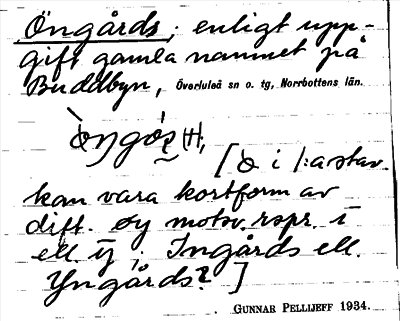 Öngårds; enligt upp-
gift gamla namnet på
Buddbyn, Överluleå sn o. tg, Norrbottens län.
[ i 1:a stav.
kan vara kortform av
dift. öy motsv. rspr. i
ell. y; Ingårds ell.
Yngårds? ]
GUNNAR PELLIJEFF 1934.